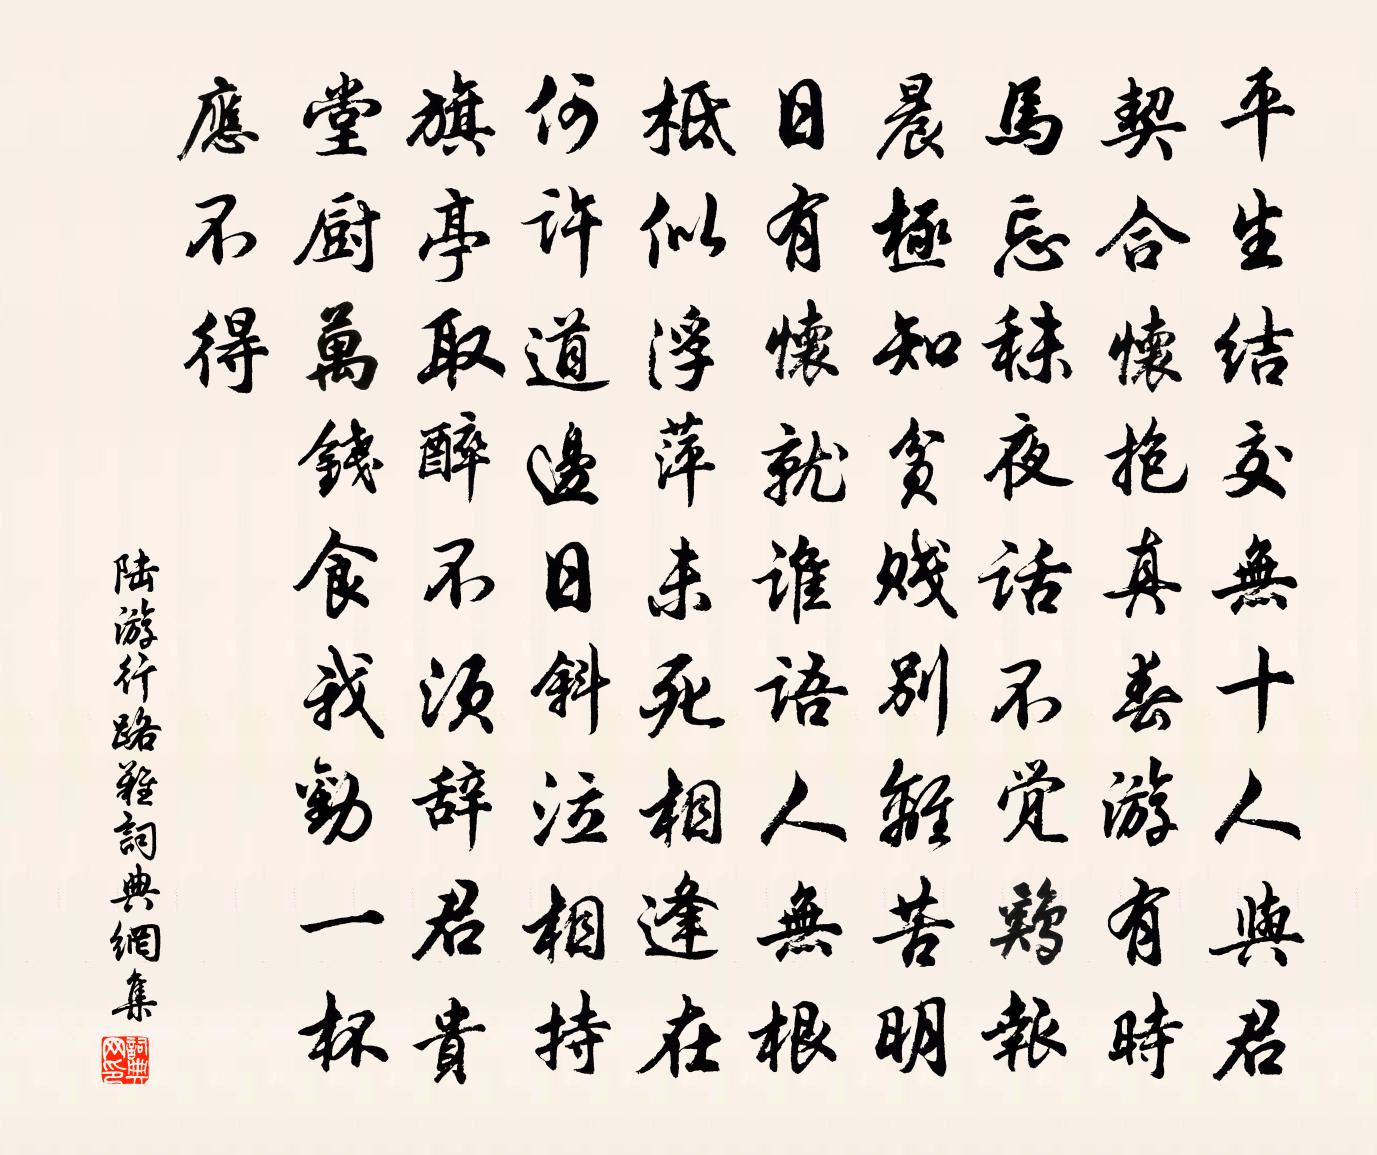 平生结交無十人與君
契合懷抱真春游有時
馬忘秣夜话不覚鶏報
晨極知貧贱别離苦明
日有懷就谁语人無根
柢似浮萍未死相逢在
何许道邊日斜泣相持
旗亭取醉不须辞君貴
堂厨萬錢食我勸一杯
應不得
陆游行路難詞典網集
詞典
网印